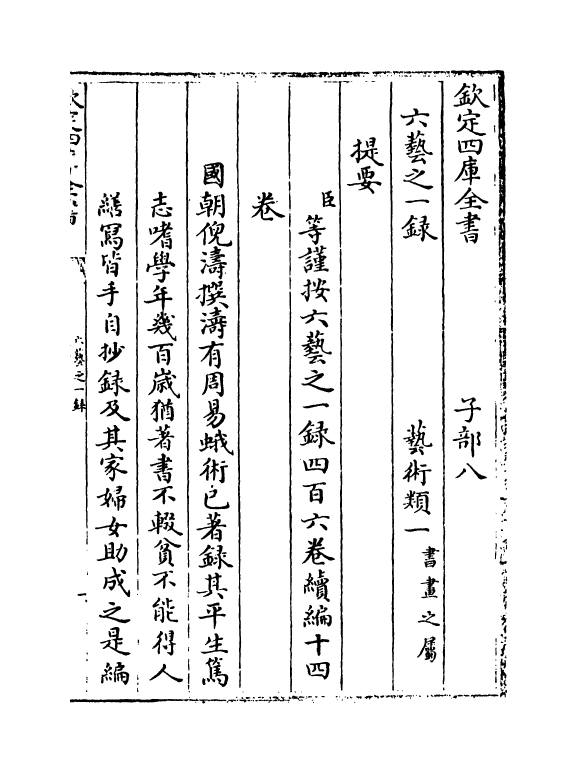 欽定四庫全書　子部八
六藝之一録　藝術類一書畫之屬
提要
臣等謹按六藝之一録四百六卷續編十四
卷
國朝倪濤撰濤有周易蛾術已著録其平生篤
志嗜學年幾百歳猶著書不輟貧不能得人
繕寫皆手自抄録及其家婦女助成之是編
六藝之一録
一